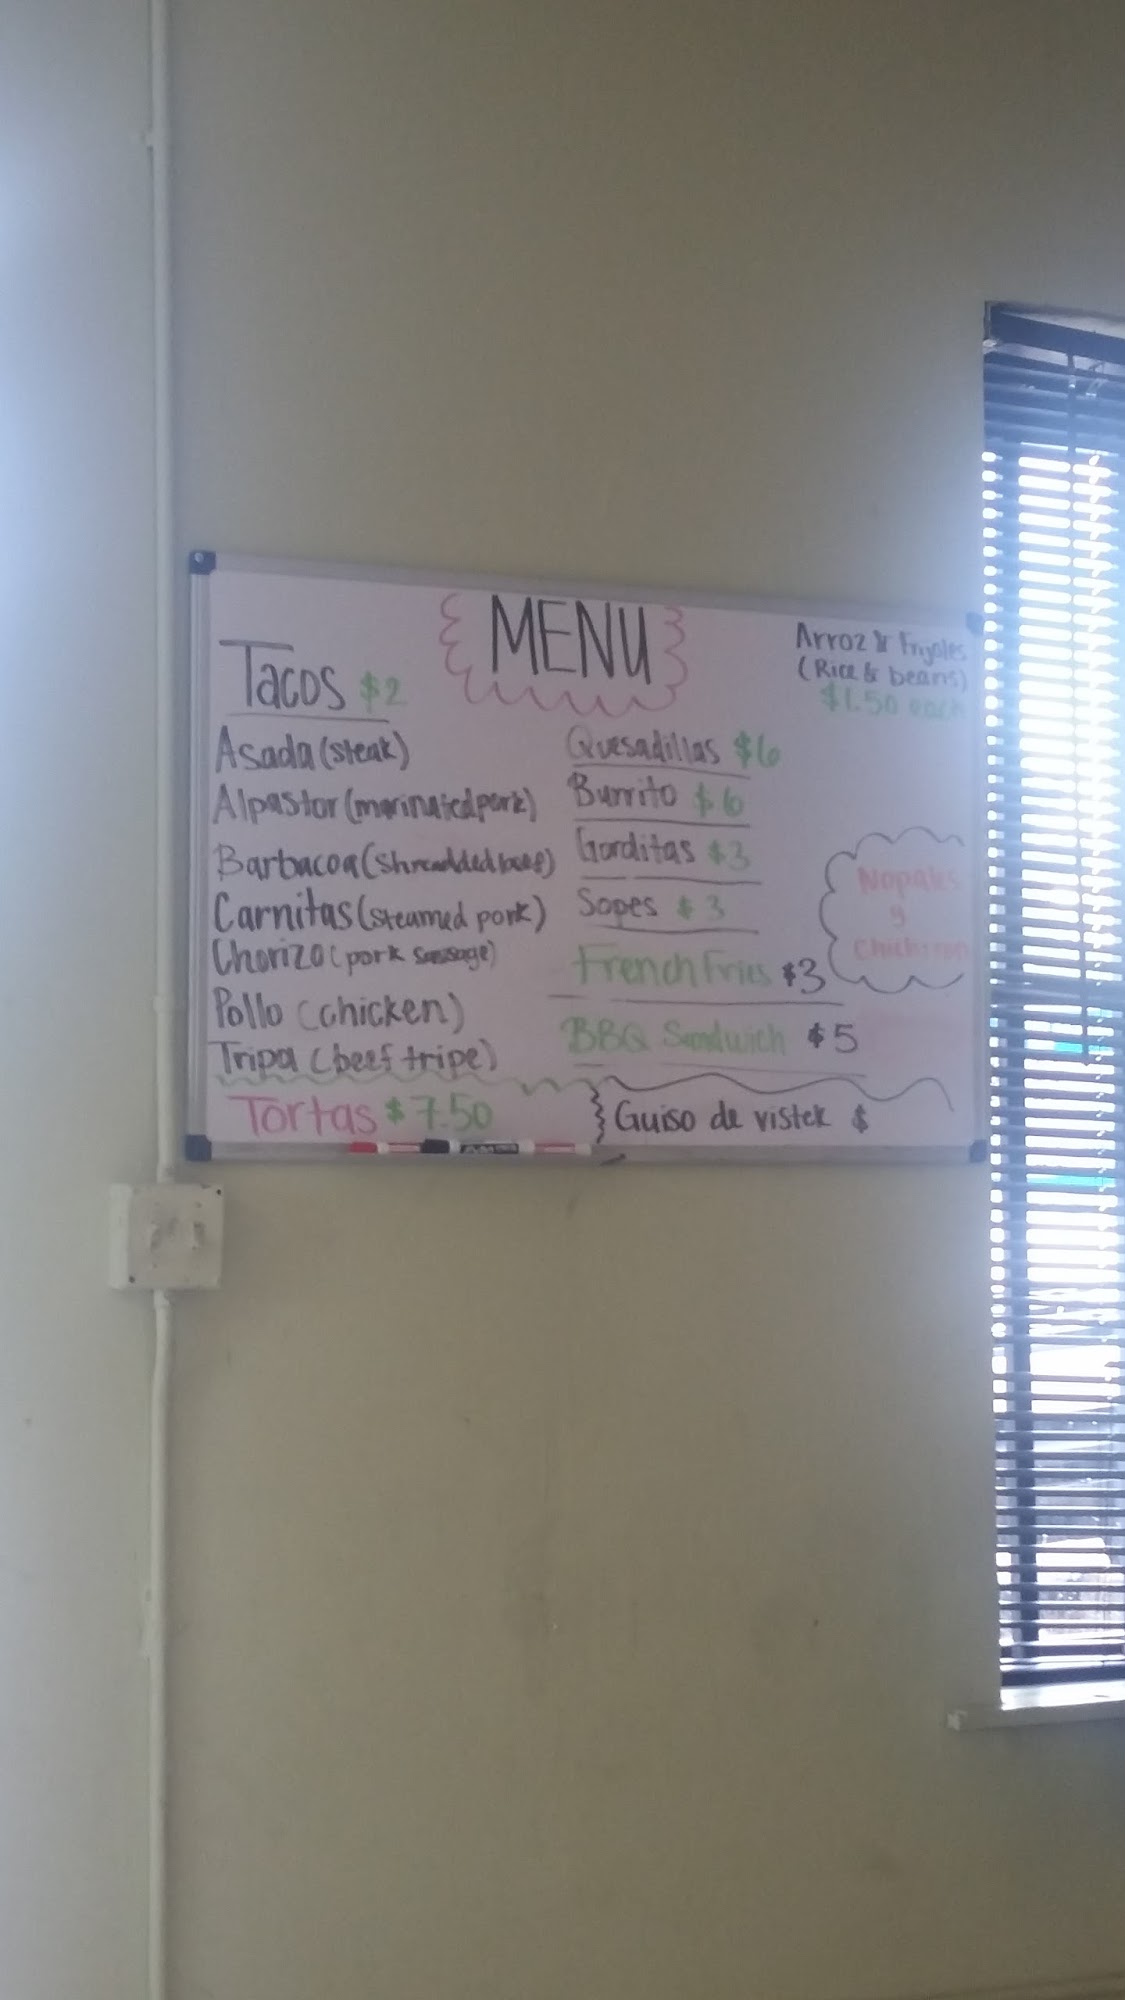 MENU
Tacos $2
Asada (steak)
Alpastor (marinated pork)
Barbacoa (shreadded beef)
Carnitas (steamed pork)
Chorizo (pork sausage)
Pollo (chicken)
Tripa (beef tripe)
Tortas $7.50
Quesadillas $6
Burrito $6
Gorditas $3
Sopes $3
French Fries $3
BBQ Sandwich $5
Guiso de vistek $
Arroz & Frijoles
(Rice & beans)
$1.50 each
Nopales
y
Chicharron